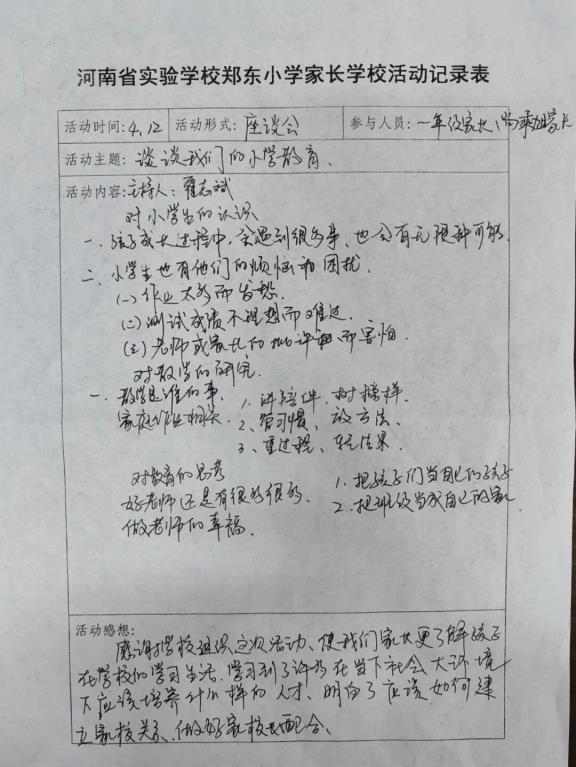 河南省实验学校郑东小学家长学校活动记录表
活动时间:4.12 活动形式:座谈会 参与人员:一年级家长、
活动主题:谈谈我们的小学教育.
活动内容:主持人:翟志斌
对小学生的认识
一、孩子成长过程中,会遇到很多事、也会有无限种可能.
二、小学生也有他们的烦恼和困扰.
(一)作业太多而发愁.
(二)测试成绩不理想而难过.
(三)老师或家长的批评而害怕.
对教学的研究.
一、教学是谁的事. 1、讲条件,树榜样.
家庭作业 2、管习惯、教方法.
3、重过程、轻结果.
对教育的思考 1.把孩子们当自己的孩子
好老师还是有很多很多、 2.把班级当成自己的家.
做老师的幸福.
活动感想:
感谢学校组织这次活动、使我们家长更了解孩子
在学校的学习生活.学习到了许多在当下社会大环境
下应该培养什么样的人才、明白了应该如何建
立家校关系、做好家校共配合、